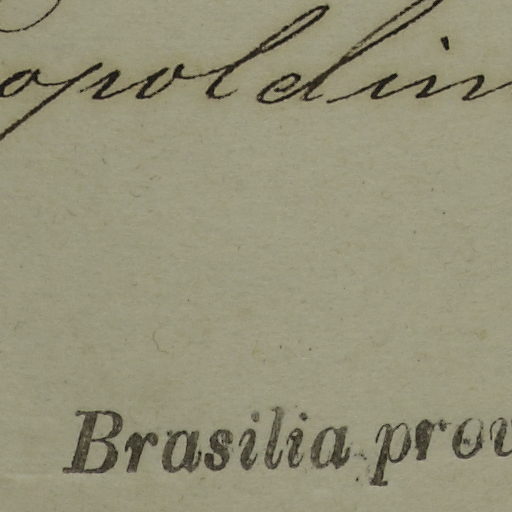 opoldin
Brasilia prov